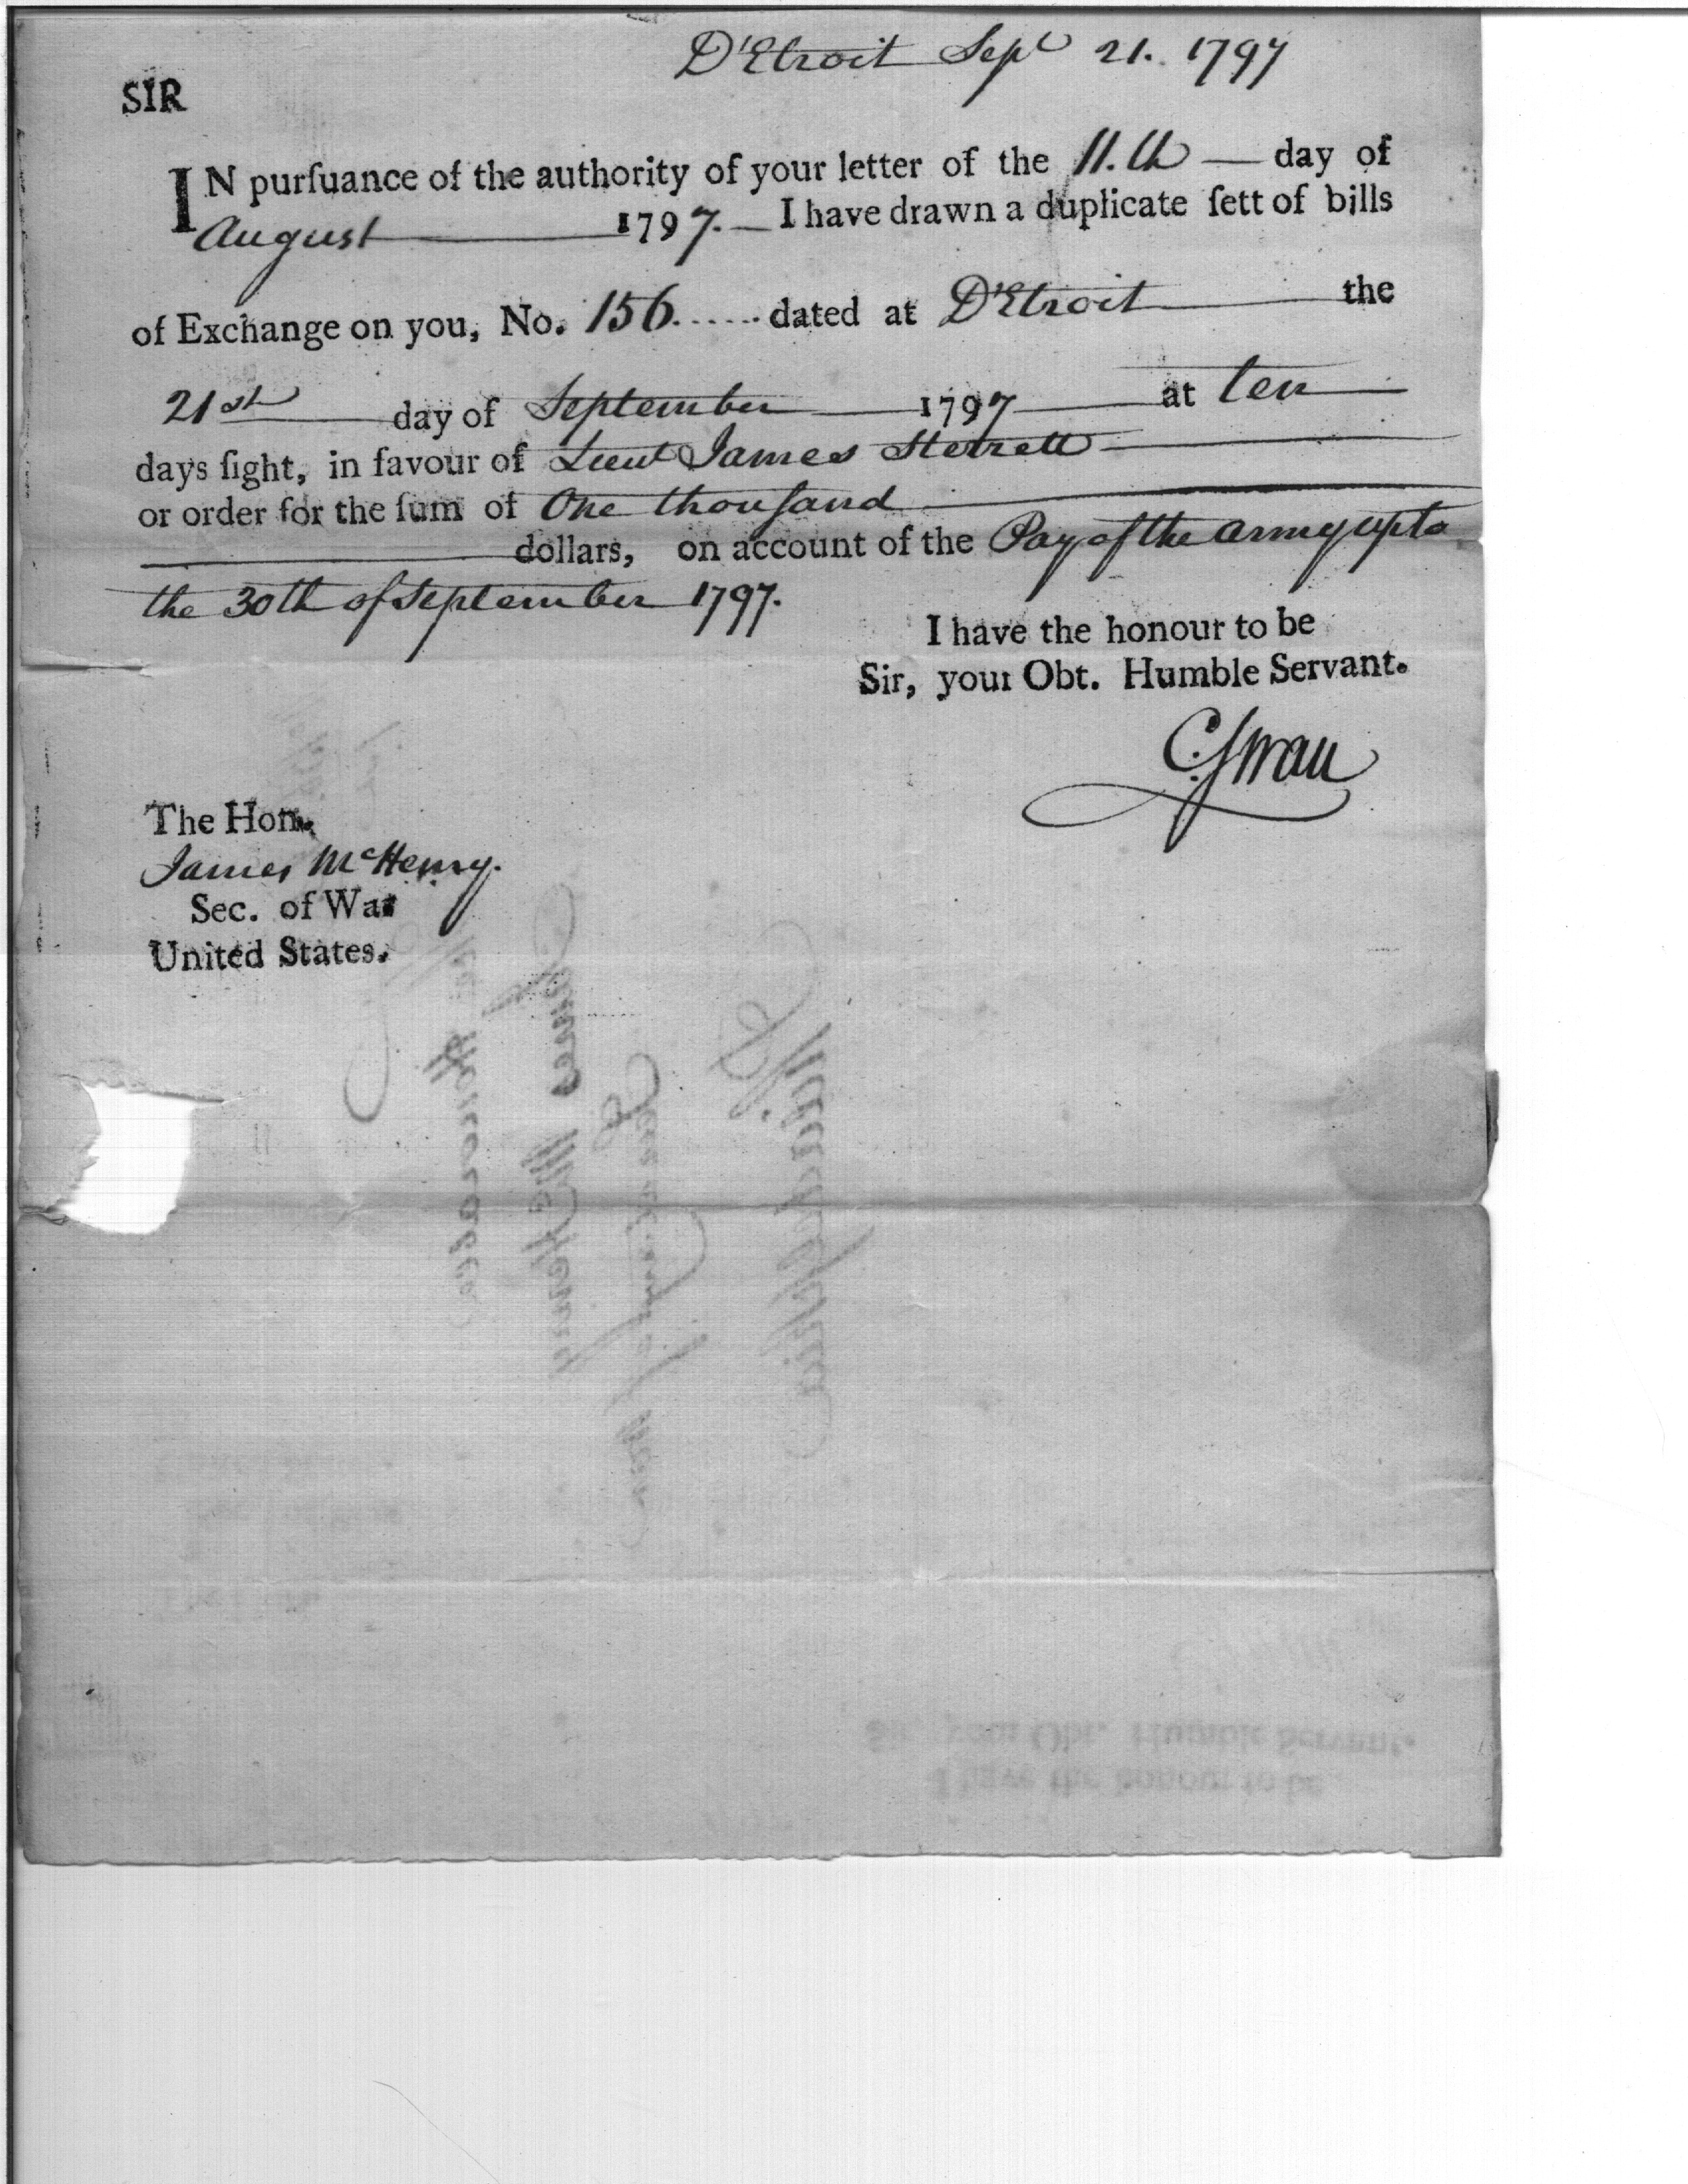 D'Etroit Sept 21. 1797
SIR
IN purſuance of the authority of your letter of the 11.th — day of
August 1797. — I have drawn a duplicate ſett of bills
of Exchange on you, No. 156...... dated at D'Etroit the
21st day of September 1797 at ten
days ſight, in favour of Lieut James Sterrett
or order for the ſum of One thouſand
dollars, on account of the Pay of the army upto
the 30th of September 1797.
I have the honour to be
Sir, your Obt. Humble Servant.
C. Swan
The Hon.
James McHenry.
Sec. of War
United States.
The Honorable
James McHenry
Secretary of War
Philadelphia
Sir, your Obt. Humble Servant.
I have the honour to be